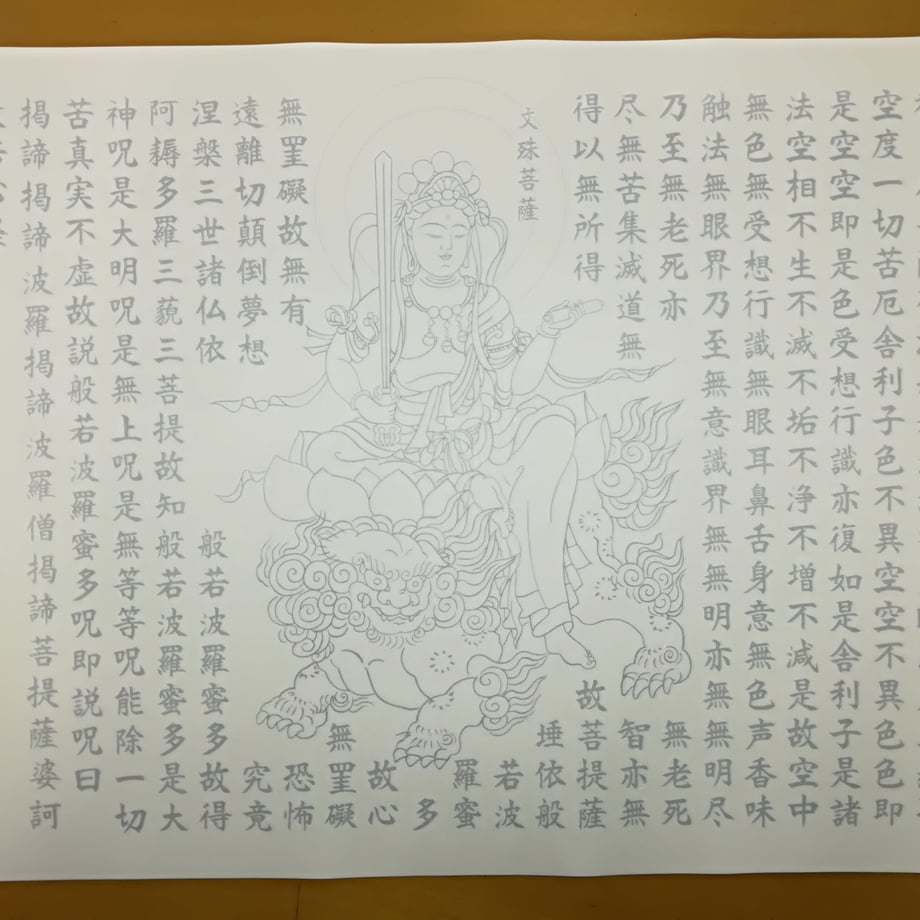 空度一切苦厄舎利子色不異空空不異色色即
是空空即是色受想行識亦復如是舎利子是諸
法空相不生不滅不垢不浄不増不減是故空中
無色無受想行識無眼耳鼻舌身意無色声香味
触法無眼界乃至無意識界無無明亦無無明尽
乃至無老死亦 無老死
尽無苦集滅道無 智亦無
得以無所得 故菩提薩
文殊菩薩
埵依般
若波
羅蜜
多
故心
無罣礙
無罣礙故無有 恐怖
遠離切顛倒夢想 究竟
涅槃三世諸仏依 般若波羅蜜多故得
阿耨多羅三藐三菩提故知般若波羅蜜多是大
神呪是大明呪是無上呪是無等等呪能除一切
苦真実不虚故説般若波羅蜜多呪即説呪曰
掲諦掲諦波羅掲諦波羅僧掲諦菩提薩婆訶